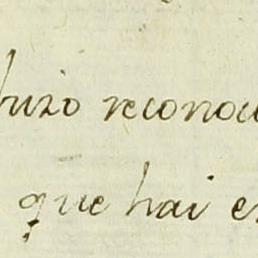 hizo reconoci
que hai e